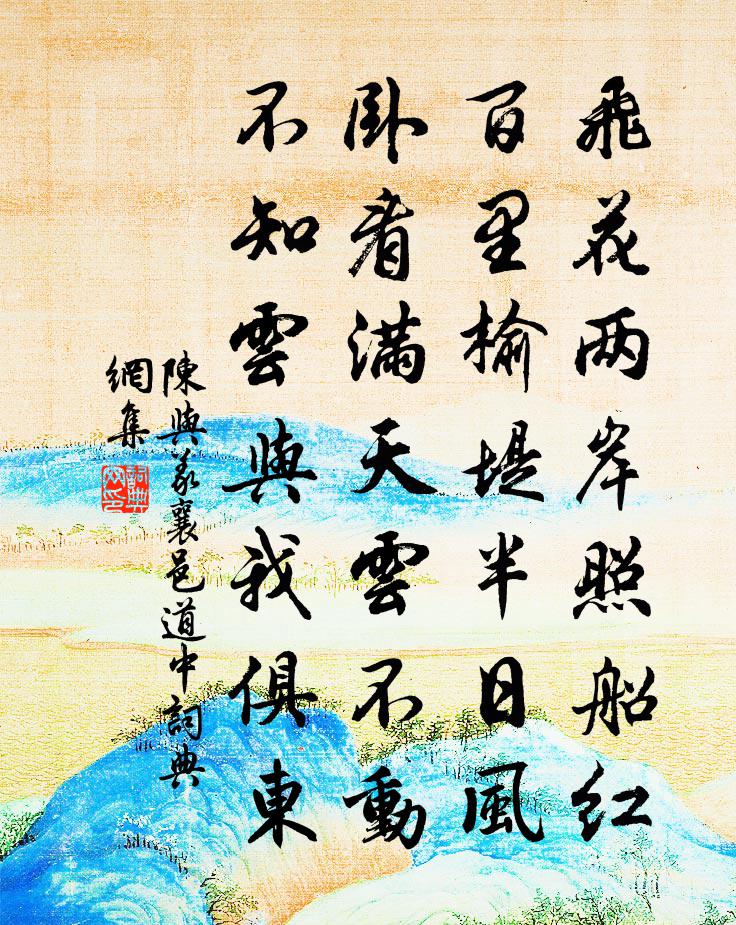 飛花两岸照船紅
百里榆堤半日風
卧看满天雲不動
不知雲與我俱東
陳與義襄邑道中詞典
網集
詞典網印